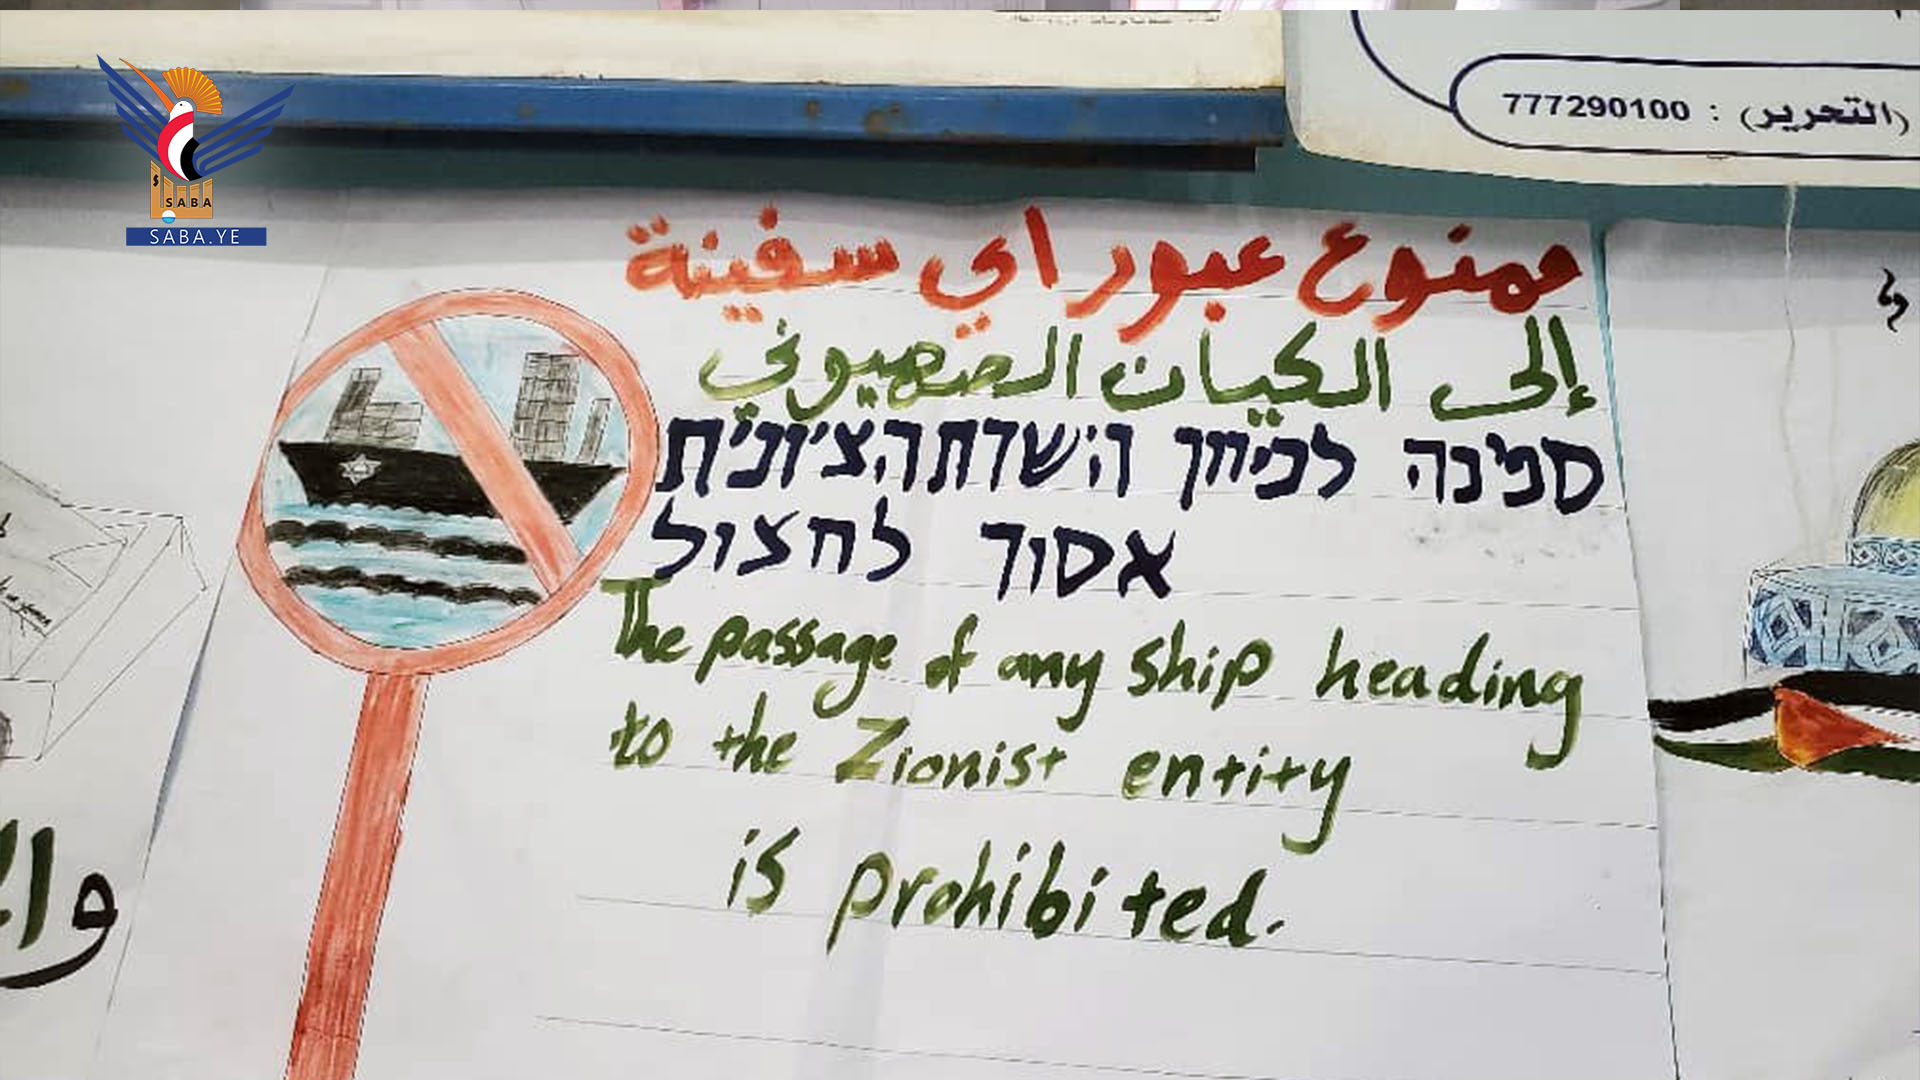 SABA
SABA.YE
(التحرير) : 777290100
ممنوع عبور اي سفينة
إلى الكيان الصهيوني
ספינה לכיוון הישות הציונית
אסור לחצול
The passage of any ship heading
to the Zionist entity
is prohibited.